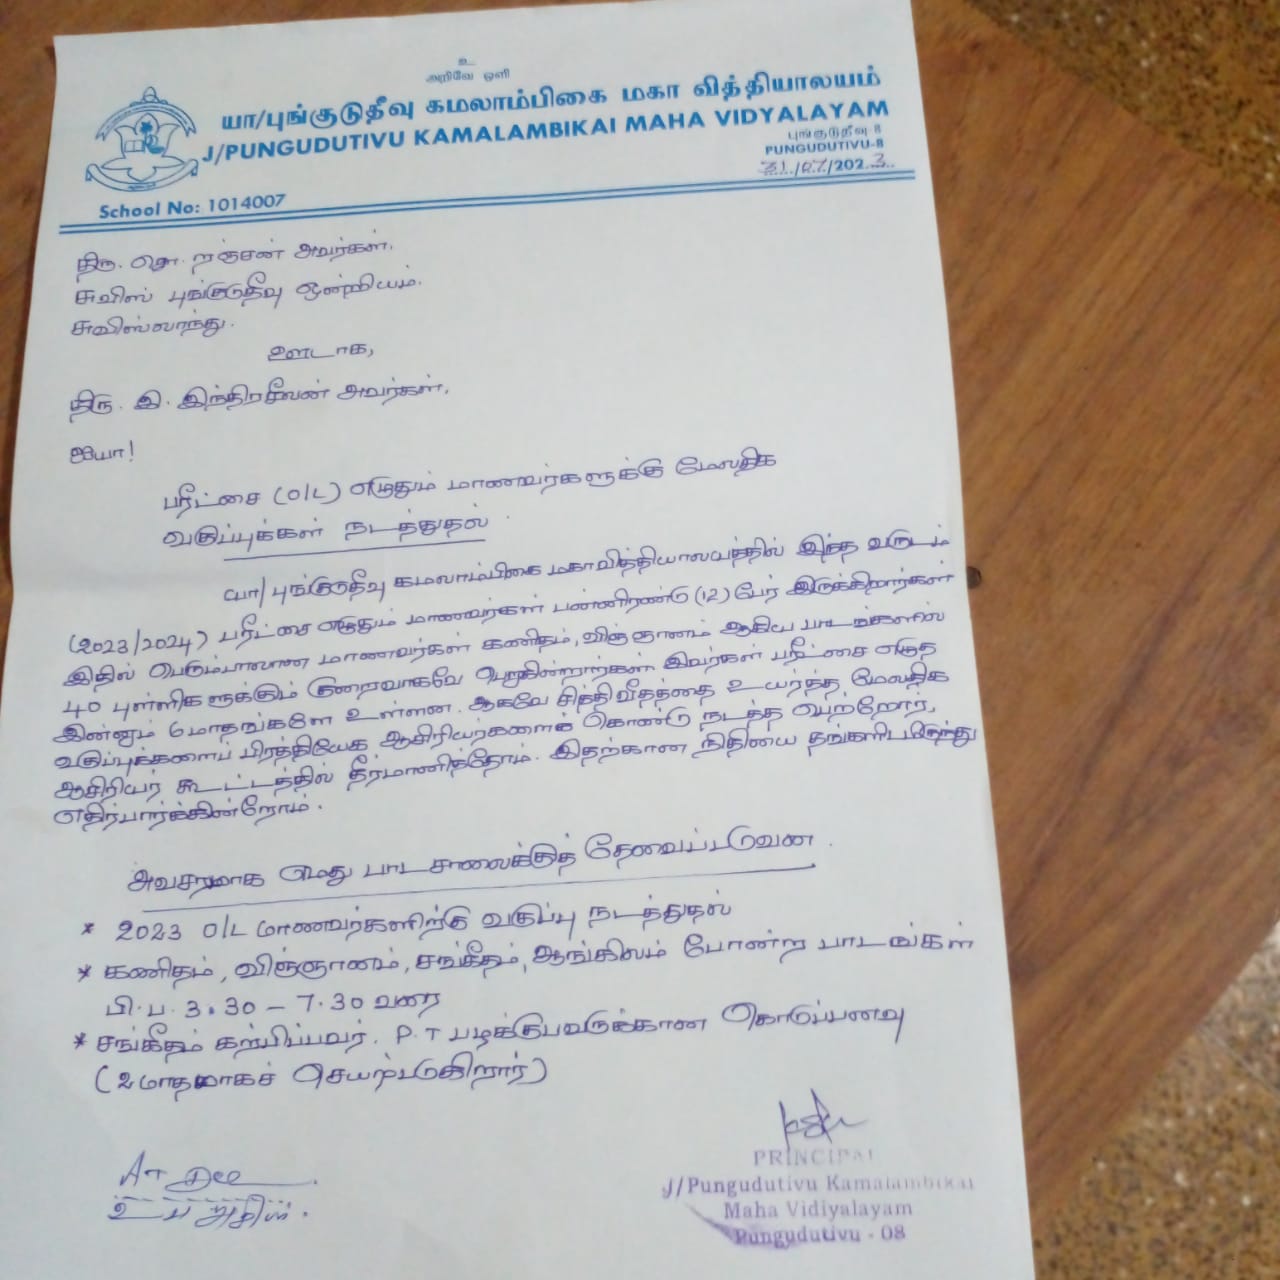 உ
அறிவே ஒளி
யா/புங்குடுதீவு கமலாம்பிகை மகா வித்தியாலயம்
J/PUNGUDUTIVU KAMALAMBIKAI MAHA VIDYALAYAM
புங்குடுதீவு 8
PUNGUDUTIVU-8
31/07/2023
School No: 1014007
திரு. சொ. றஞ்சன் அவர்கள்.
சுவிஸ் புங்குடுதீவு ஒன்றியம்.
சுவிஸ்லாந்து.
ஊடாக,
திரு. இ. இந்திரசீலன் அவர்கள்.
ஐயா!
பரீட்சை (O/L) எழுதும் மாணவர்களுக்கு மேலதிக
வகுப்புக்கள் நடத்துதல்.
யா/புங்குடுதீவு கமலாம்பிகை மகாவித்தியாலயத்தில் இந்த வருடம்
(2023/2024) பரீட்சை எழுதும் மாணவர்கள் பன்னிரண்டு (12) பேர் இருக்கிறார்கள்
இதில் பெரும்பாலான மாணவர்கள் கணிதம், விஞ்ஞானம் ஆகிய பாடங்களில்
40 புள்ளிகளுக்கும் குறைவாகவே பெறுகின்றார்கள். இவர்கள் பரீட்சை எழுத
இன்னும் 6 மாதங்களே உள்ளன. ஆகவே சித்திவீதத்தை உயர்த்த மேலதிக
வகுப்புக்களைப் பிரத்தியேக ஆசிரியர்களைக் கொண்டு நடத்த பெற்றோர்,
ஆசிரியர் கூட்டத்தில் தீர்மானித்தோம். இதற்கான நிதியை தங்களிடமிருந்து
எதிர்பார்க்கின்றோம்.
அவசரமாக எமது பாடசாலைக்குத் தேவைப்படுவன.
* 2023 O/L மாணவர்களிற்கு வகுப்பு நடத்துதல்
* கணிதம், விஞ்ஞானம், சங்கீதம், ஆங்கிலம் போன்ற பாடங்கள்
பி.ப. 3.30 – 7.30 வரை
* சங்கீதம் கற்பிப்பவர். P.T பழக்குபவருக்கான கொடுப்பனவு
(2 மாதமாகச் செயற்படுகிறார்)
PRINCIPAL
J/Pungudutivu Kamalambikai
Maha Vidiyalayam
Pungudutivu - 08
உப அதிபர்.